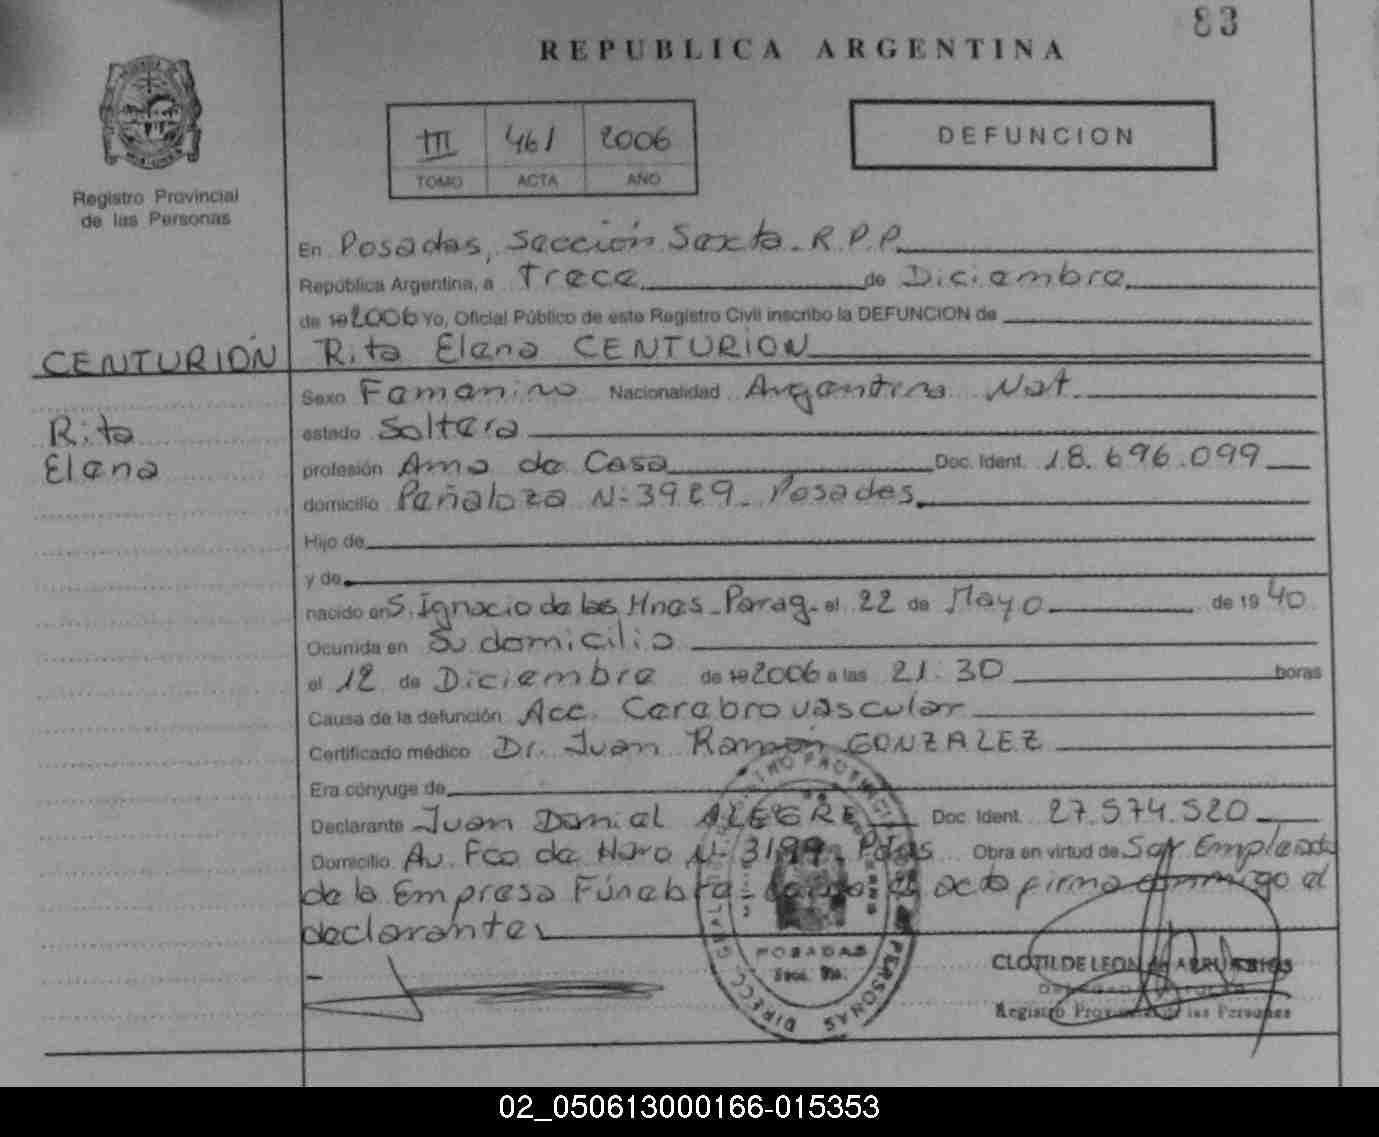 83
REPUBLICA ARGENTINA
III 461 2006
TOMO ACTA AÑO
DEFUNCION
Registro Provincial
de las Personas
En Posadas, Sección Sexta. R.P.P.
República Argentina, a Trece de Diciembre
de 192006 Yo, Oficial Público de este Registro Civil inscribo la DEFUNCION de
CENTURIÓN Rita Elena CENTURION
Sexo Femenino Nacionalidad Argentina Nat.
Rita
estado Soltera
Elena
profesión Ama de Casa Doc. Ident. 18.696.099
domicilio Peñaloza N: 3929 - Posadas
Hijo de
y de
nacido en S. Ignacio de las Hnas - Parag. el 22 de Mayo de 1940
Ocurrida en Su domicilio
el 12 de Diciembre de 192006 a las 21:30 horas
Causa de la defunción Acc. Cerebrovascular
Certificado médico Dr. Juan Ramón GONZALEZ
Era cónyuge de
Declarante Juan Daniel ALEGRE Doc. Ident. 27.574.520
Domicilio Av. Fco de Haro N: 3199 - Pdas Obra en virtud de Ser Empleado
de la Empresa Fúnebre acto firma conmigo el
declarante
POSADAS
Secc. 6ta.
CLOTILDE LEON de
Registro Provincial de las Personas
02_050613000166-015353